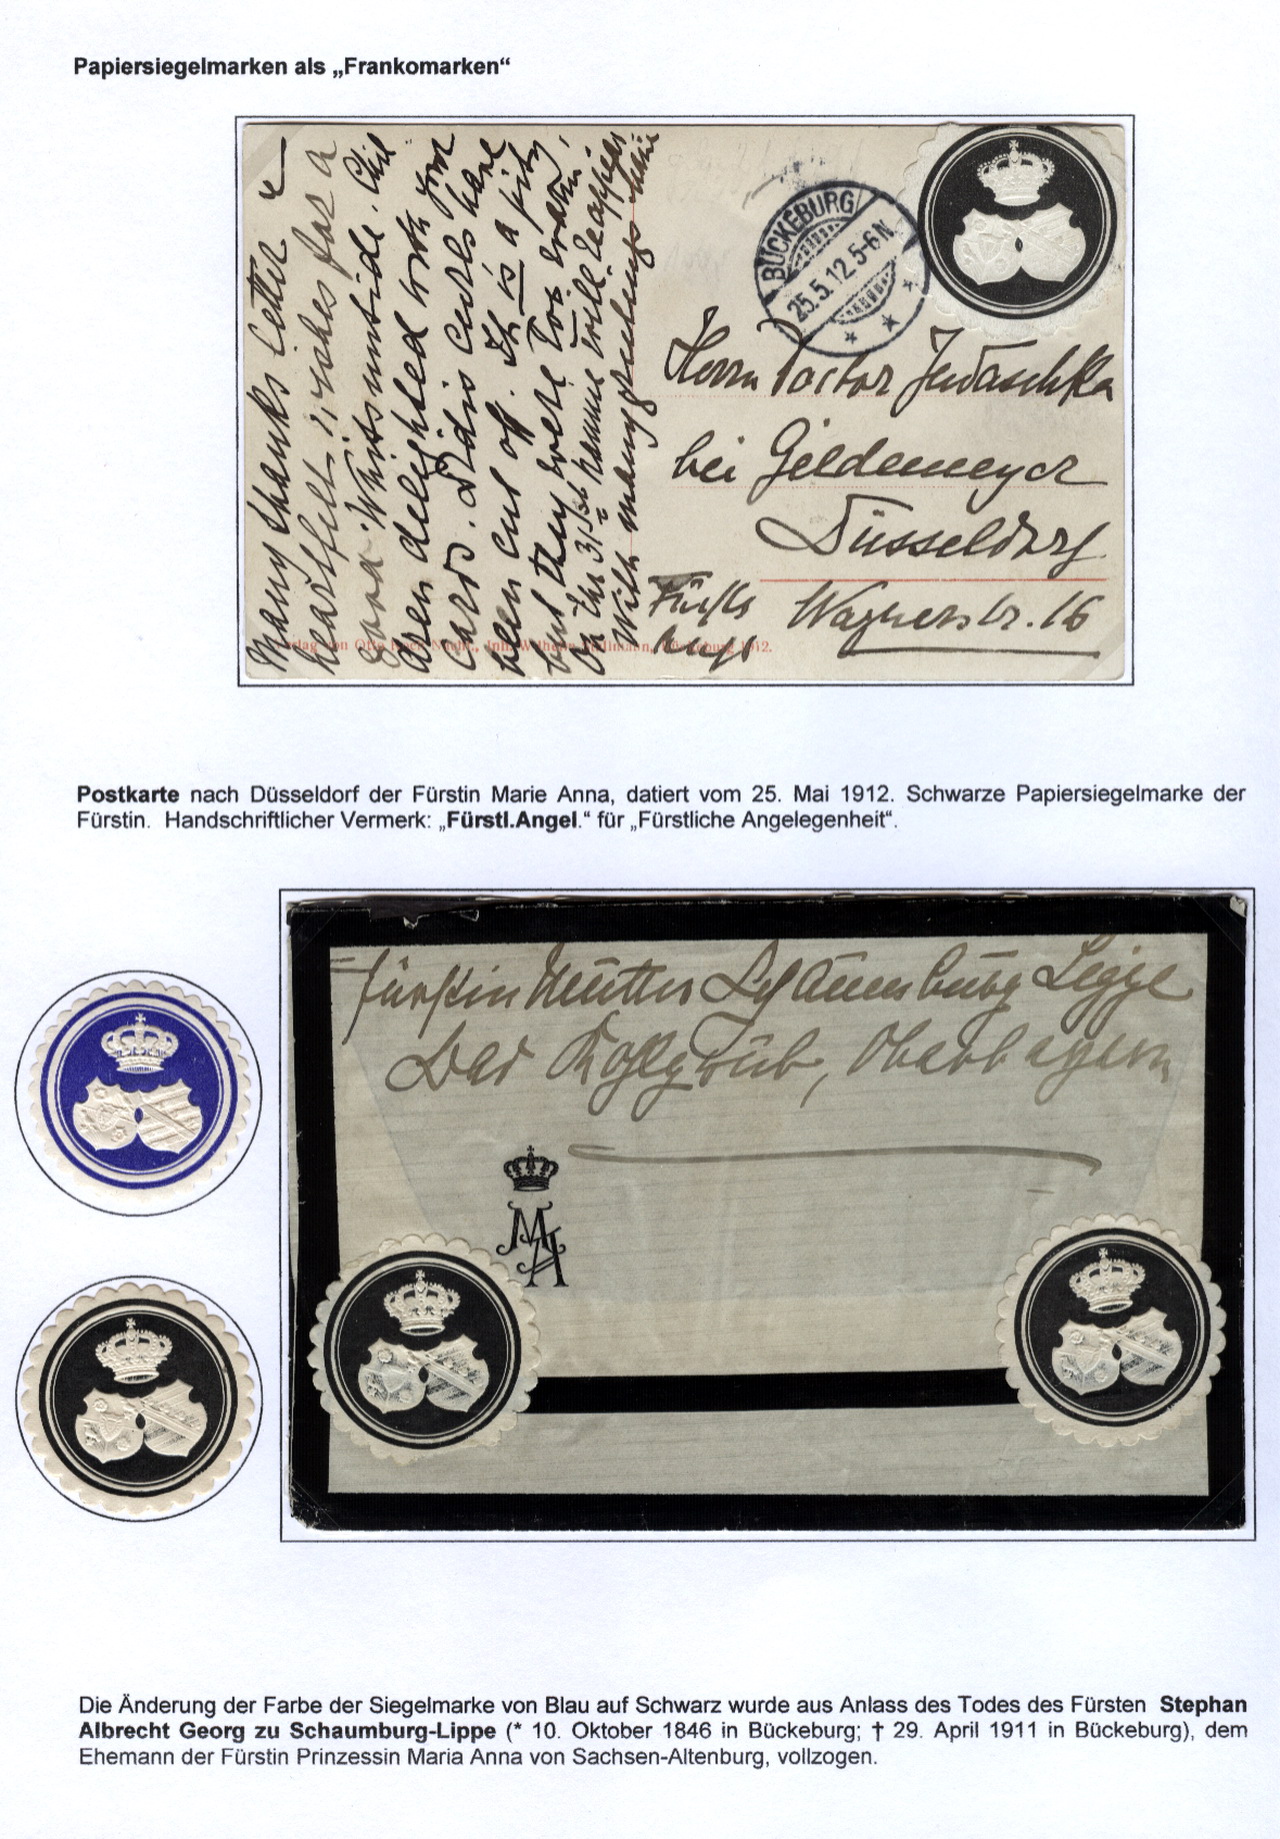 Papiersiegelmarken als „Frankomarken“
Many thanks letter &
heartfelt wishes for a
good Whitsuntide. Chil
dren delighted with your
cards. Didis curls have
been cut off. It is a pity
but they were too
On the 31st
With many greetings
BÜCKEBURG
25.5.12.5-6N.
Herrn Pastor Judaschka
bei Gildemeyer
Düsseldorf
Wagnerstr. 16
Fürstl.
Angel.
Verlag von Otto Nachf., Inh. Wilhelm Bückeburg 1912.
Postkarte nach Düsseldorf der Fürstin Marie Anna, datiert vom 25. Mai 1912. Schwarze Papiersiegelmarke der
Fürstin. Handschriftlicher Vermerk: „Fürstl.Angel.“ für „Fürstliche Angelegenheit“.
Fürstin Mutter Schaumburg Lippe
Bad Kohlgrub, Oberbayern
MA
Die Änderung der Farbe der Siegelmarke von Blau auf Schwarz wurde aus Anlass des Todes des Fürsten Stephan
Albrecht Georg zu Schaumburg-Lippe (* 10. Oktober 1846 in Bückeburg; † 29. April 1911 in Bückeburg), dem
Ehemann der Fürstin Prinzessin Maria Anna von Sachsen-Altenburg, vollzogen.